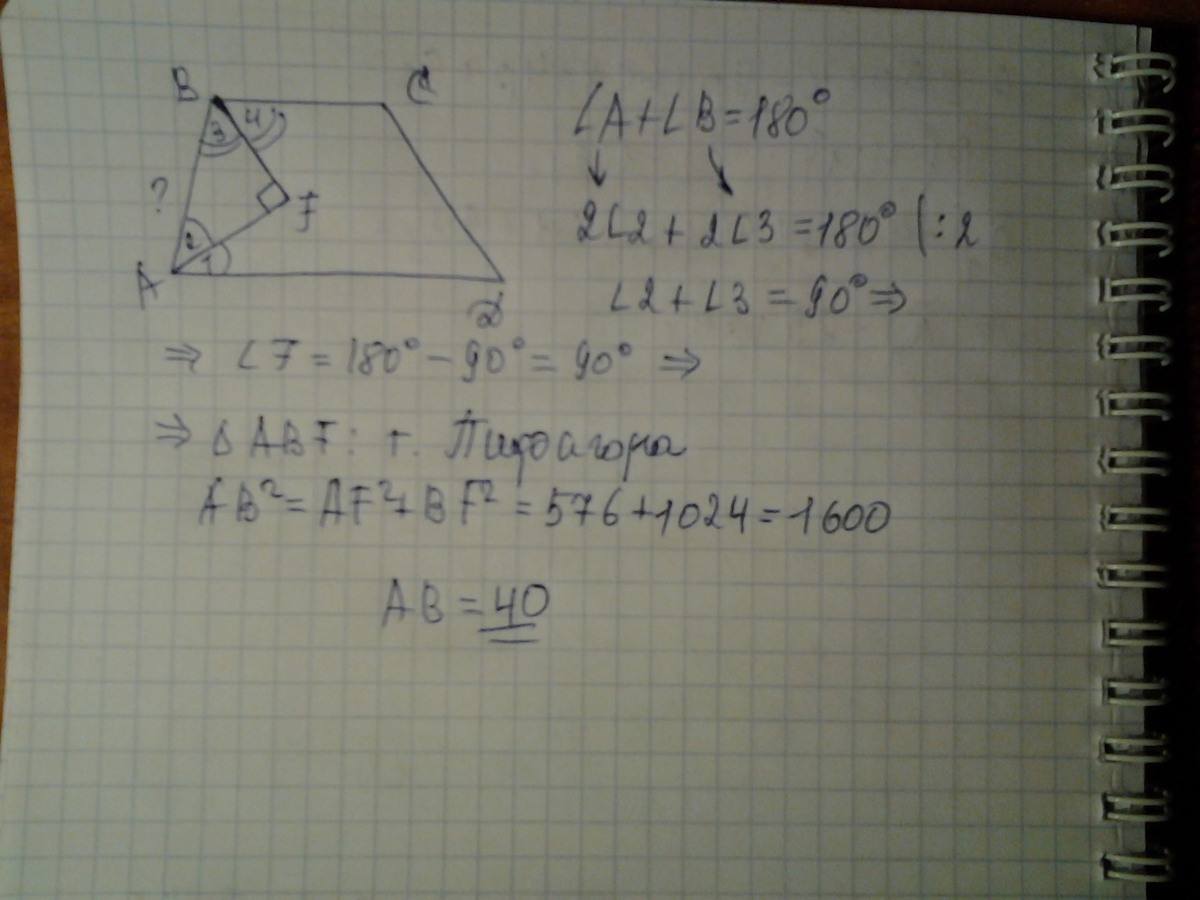 B
C
3
4
?
F
2
1
A
D
∠A+∠B=180°
2∠2+2∠3=180° (:2
∠2+∠3=90°⇒
⇒ ∠F=180°-90°=90° ⇒
⇒ Δ ABF: т. Пифагора
AB²=AF²+BF²=576+1024=1600
AB=40